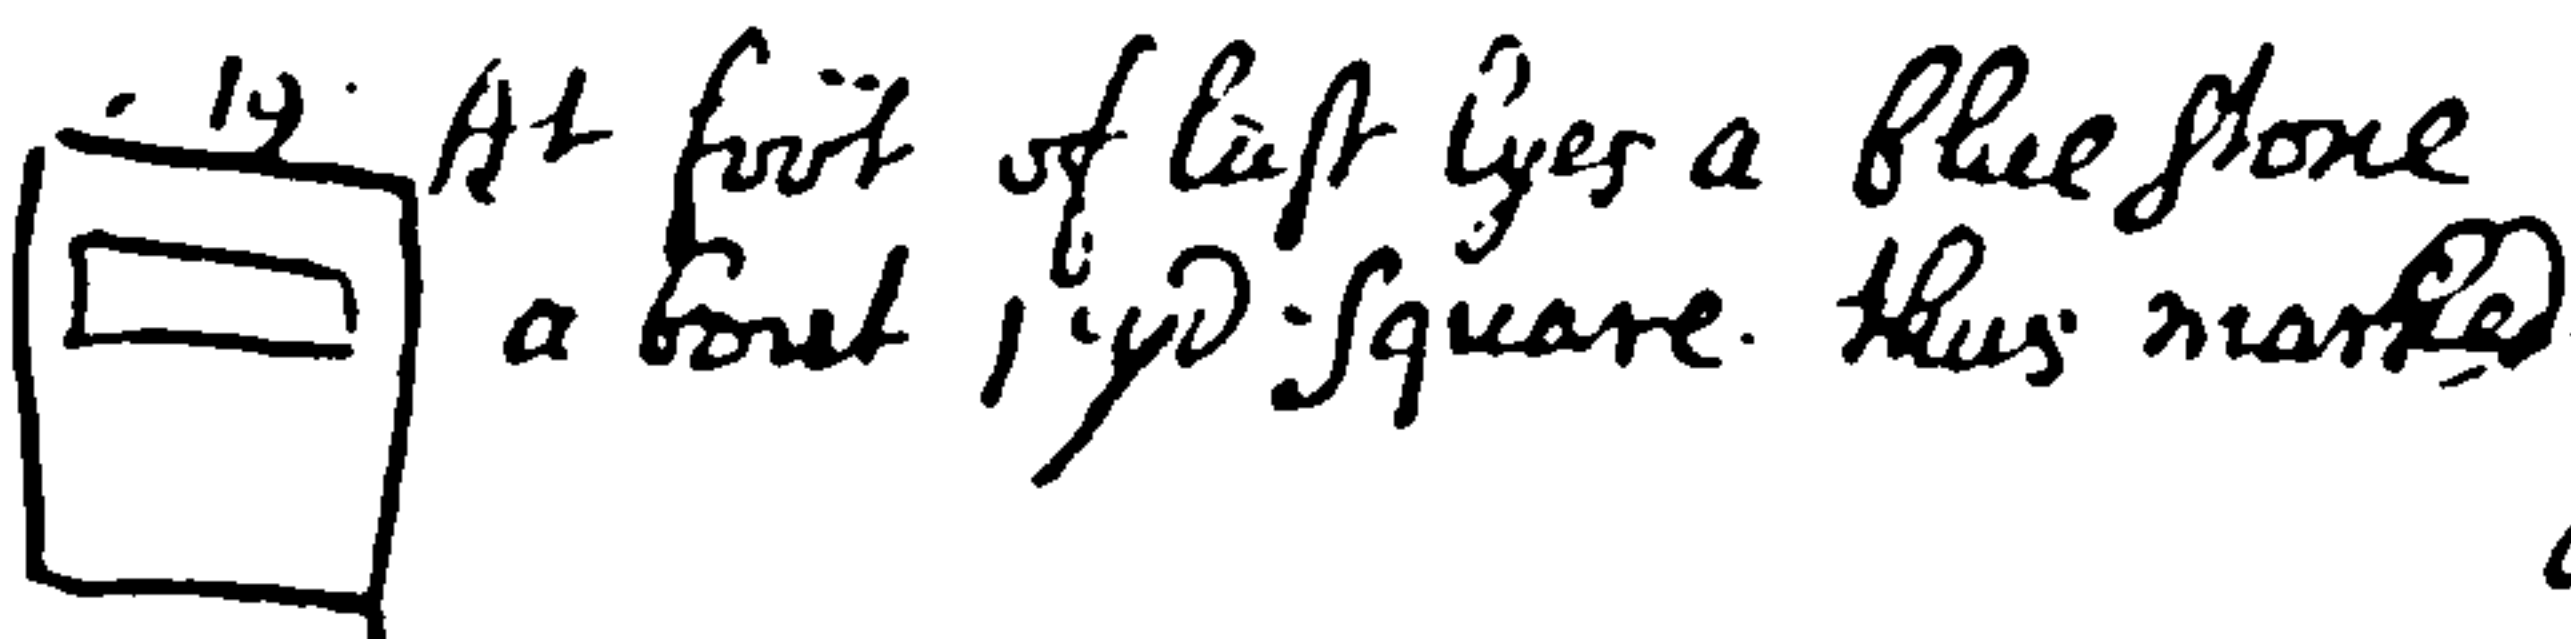 . 19 . At foot of last lyes a blue stone
a bout 1 · yd - square. thus marked